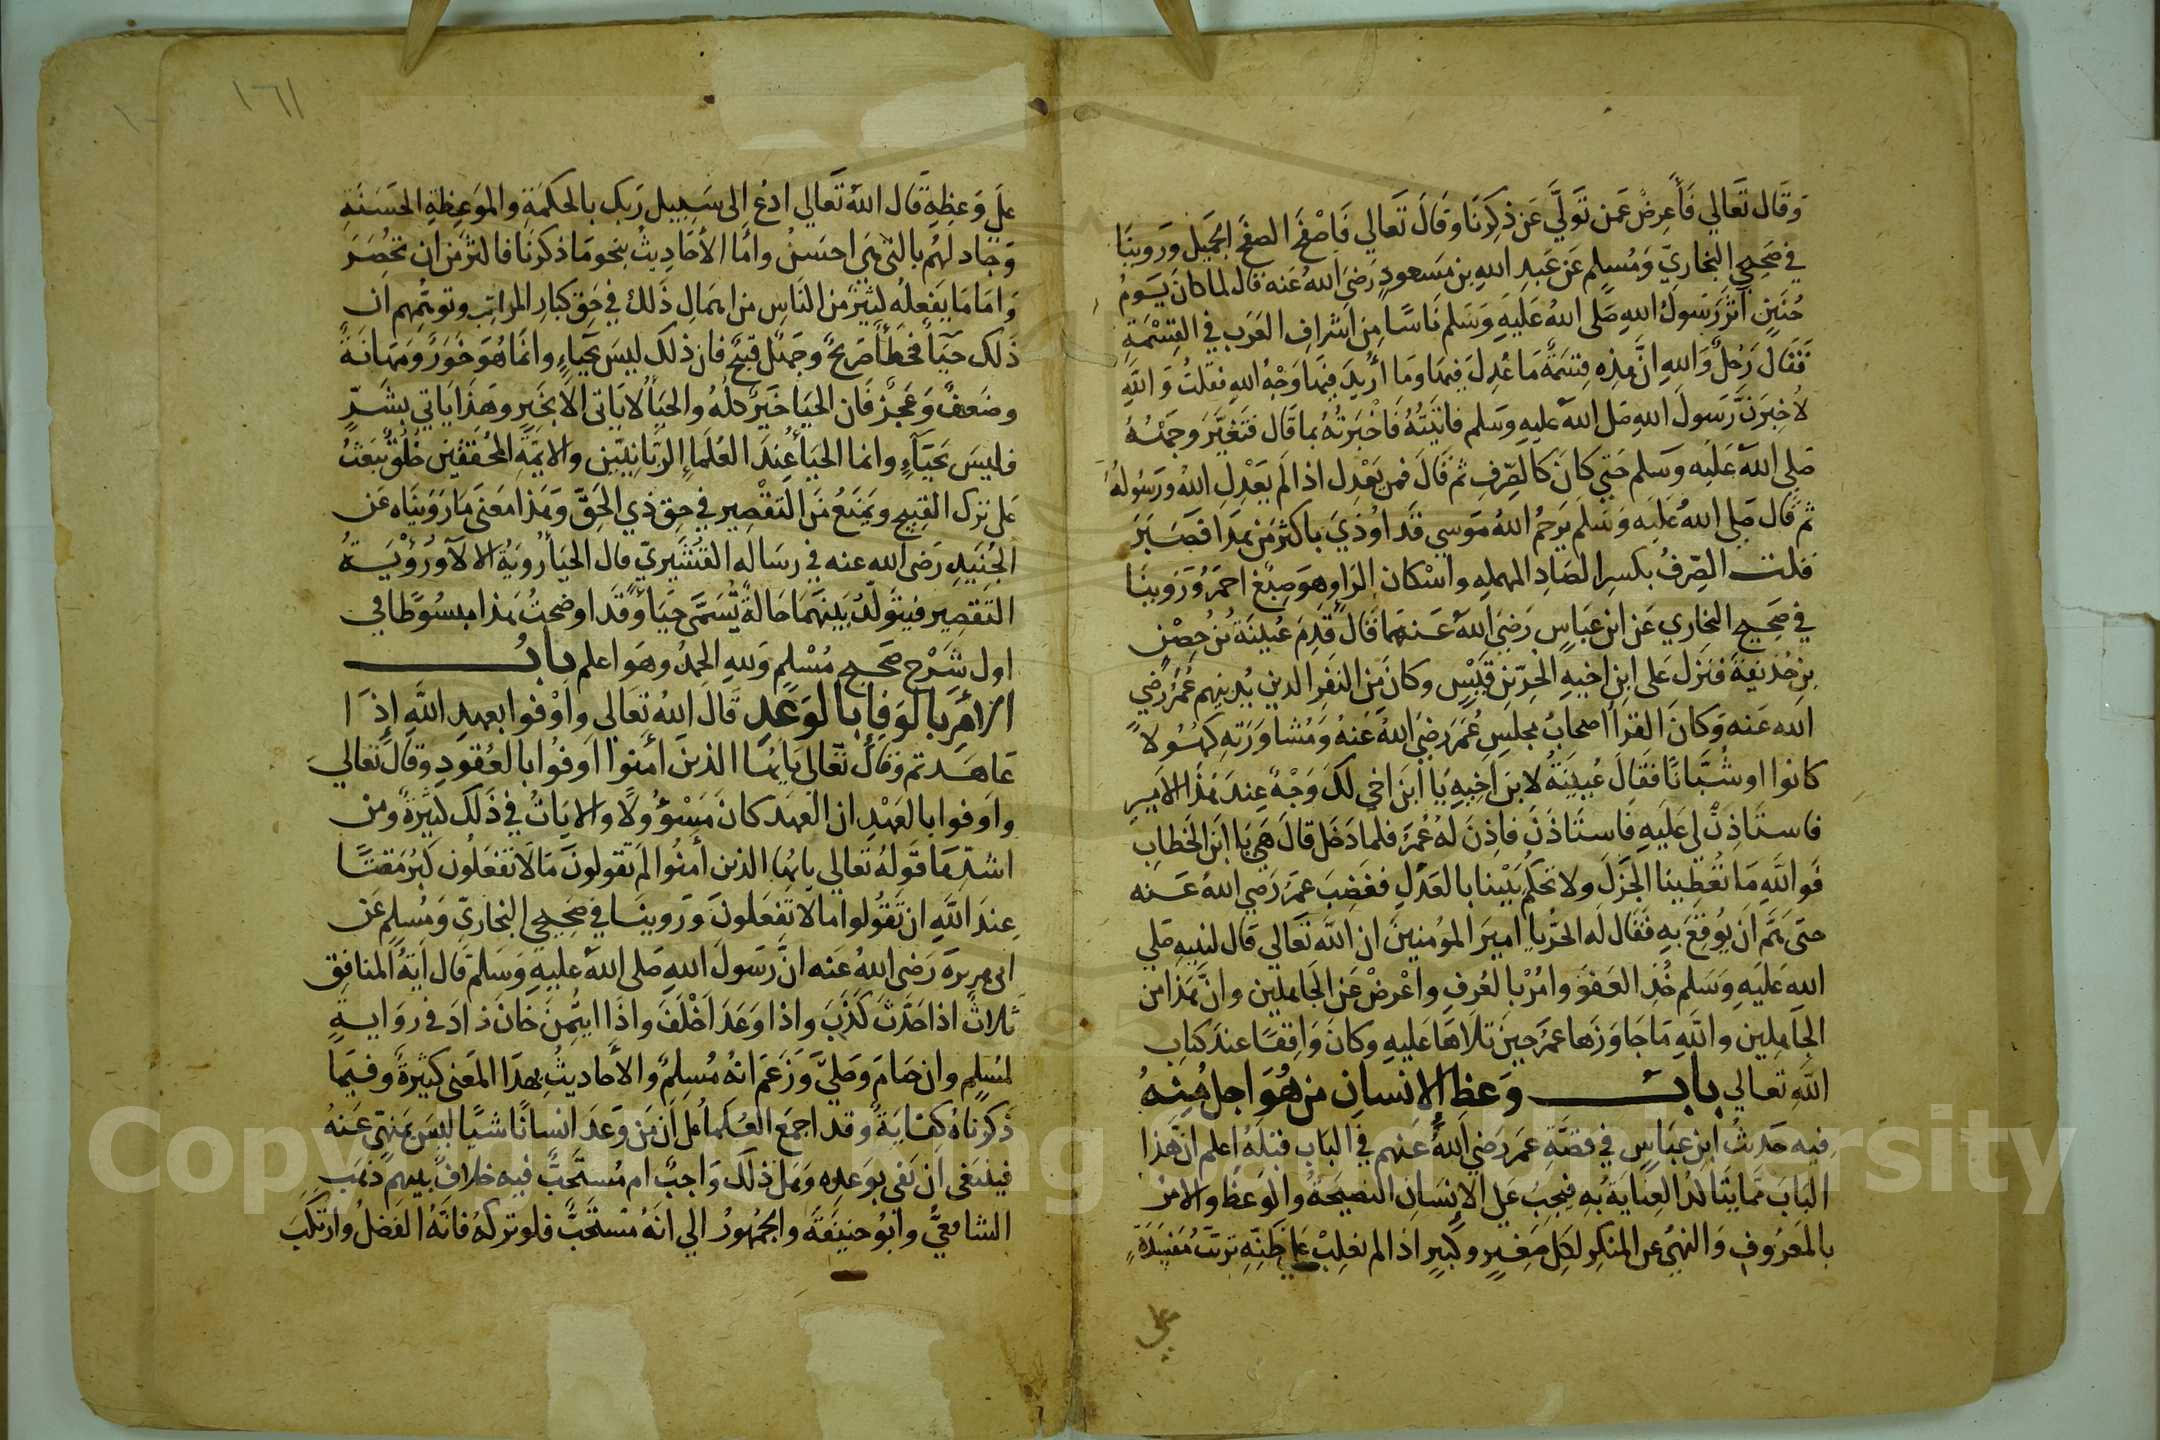 وَقَال تَعَالي فَأَعرِضْ عَمن تَوَلَّي عَن ذكِرنَا وَقَالَ تَعَالي فَاصْفَح الصفحَ الجَميل وَروينَا
في صَحِيحي البخاريّ وَمُسلم عَن عَبدِ اللهِ بن مَسعودٍ رَضي اللهُ عَنه قال لما كانَ يَومُ
حُنَينٍ آثرَ رَسولُ اللهِ صَلى اللهُ عَليَهِ وَسَلم نَاسًا مِن اشرافِ العَرَب في القِسْمَةِ
فَقَالَ رَجُلٌ وَاللهِ انَّ هذِه قِسَمةٌ مَا عُدِلَ فيهَا وَمَا أُريدَ فِيهَا وَجهُ اللهِ فقلتُ وَاللهِ
لأُخبِرَنَّ رَسولَ اللهِ صَلى اللهُ عليهِ وَسَلم فاتَيتُهُ فَاخْبرَتُهُ بما قَال فَتَغيَّرَ وَجههُ
صَلى اللهُ عَليَه وسَلم حَتي كانَ كالصِّرفِ ثمَّ قَالَ فمن يَعْدِل اذا لَم يَعْدِلِ اللهُ وَرسُولهُ
ثم قَال صَلي اللهُ عَليَه وَسَلم يَرحمُ اللهُ مَوسي قَد اوُذيَ باكثر مَن هَذا فَصَبَرَ
قلت الصِّرفُ بكسرِ الصَادِ المهملهِ واسْكان الرَاِ وهوَ صِبغ احمَرُ وَرَوينَا
في صَحِيح البخاري عَن ابن عَبَاسٍ رَضيَ اللهُ عَنهمَا قَال قَدِمَ عُيَينَةُ بنُ حِصْنٍ
بن حُذَيفَة فَنزَل عَلى ابنِ اخيهِ الحرِّ بن قَيْسٍ وكان مَن النفَرِ الذين يُدنيهم عُمَرُ رَضي
الله عَنه وَكانَ القرَاُ اصحابُ مجلس عُمَرَ رَضيَ اللهُ عَنهُ وَمُشاوَرَتِه كهُوُلاً
كانوا او شُبَّانًا فَقَالَ عُيَينَةُ لابن اخِيهِ يَا ابنَ اخي لكَ وَجْهٌ عِندَ هذَا الاميرِ
فاستَاذِنْ لي عَليَهِ فَاستَاذَنَ فاذِنَ لهُ عُمَرُ فلما دَخَل قالَ هي يَا ابنَ الخطابِ
فَواللهِ مَا تُعْطِينا الجَزْلَ ولا تحكمُ بَيْننا بالعَدْلِ فغَضِبَ عمَرُ رَضي اللهُ عَنه
حتى هَمَّ اَنْ يُوقِعَ بِهِ فَقَال لَه الحرُّ يا اميرَ المؤمِنينَ ان اللهَ تَعَالي قَال لنَبيهِ صَلي
اللهِ عَليَهِ وَسَلم خُذِ العَفوَ وامُرْ بالعُرفِ واعْرضْ عَن الجَاهلين وانَّ هَذا من
الجَاهلِين واللهِ مَا جَاوَزَها عمَرُ حِينَ تلاهَا عَليهِ وكانَ وَاقِفًا عندَ كتابِ
اللهِ تعالي باب وَعظِ الانسانِ من هُوَ اجل مِنهُ
فيه حَديثُ ابن عبَاسٍ في قصَّةِ عمَر رَضي اللهُ عَنهم في البَاب قبلهَ اعلم انَّ هَذا
البَابَ مما يتَاكدُ العِنَايةُ بهِ فيجبُ عَلى الإنسَانِ النصيحَةُ والوَعظُ والامرُ
بالمَعَرُوفِ وَالنهيُ عن المنكرِ لكل صَغيرٍ وكبيرٍ اذا لم يغلِبْ عَلي ظنّهِ ترتّبُ مفسَدَةٍ
علي
١٦١
علَى وَعظِهِ قَال اللهُ تَعَالي ادعُ الى سَبيل رَبك بالحكمَةِ والموَعظِةِ الحَسَنَةِ
وَجَادلهُم بالتي هيَ احسَنُ واما الأحَاديثُ بنحو مَا ذكرنَا فاكثر مَن ان تُحصَرَ
وَامَا مَا يَفعِلُه كثيرٌ مَن النَاسِ من اهمَالِ ذَلكَ في حَقِ كبار المراتب وتوهّمهم ان
ذَلك حَيَاٌ فخَطَأٌ صَريحٌ وجَهلٌ قبيحٌ فان ذلك ليسَ بحَيَاءٍ وانمَا هُوَ خَوَرٌ وَمَهانَةٌ
وضَعفٌ وَعَجزٌ فَان الحيَا خَيرٌ كلُهُ والحيَاُ لا يَاتى الاَّ بخَيرٍ وهَذا يَاتي بشَرٍّ
فليسَ بحَيَاءٍ وانما الحيَاُ عِندَ العُلمَاءِ الرَّبَانيّين والايَّمَّة المحُققينَ خُلُقٌ يَبعَثُ
عَلى ترك القبيح ويَمنَعُ مَن التقْصِير في حِق ذي الحَقّ وَهَذا مَعنى مَا رَوَينَاه عَن
الجُنَيدِ رَضى الله عنه في رسَاله القُشَيريّ قال الحيَاُ رُويَةُ الالآ وَرُؤْيَةُ
التقصِير فيَتوَلّدُ بَينهُمَا حَالةٌ تُسَمَّى حَيَاً وَقَد اوضَحتُ هَذا مبسُوطًا في
اول شَرْح صَحيح مُسْلِم وَلله الحمدُ وهَو اعلم بابُ
الأمَرِ بالوَفاِ بالوَعَدِ قَالَ اللهُ تعَالي واوْفوا بعهدِ اللهِ إذَا
عَاهَدتم وَقالَ تعَالي يَايُّهَا الذينَ امَنوا اوفُوا بالعُقودِ وقال تعَالي
واوَفوا بالعَهْدِ ان العَهدَ كانَ مَسْؤُولًا والايَاتُ في ذَلكَ كثيرَةٌ ومن
اشدِّهَا قَولهُ تعَالي يايُّهَا الذين امنُوا لمَ تَقولونَ مَا لَا تَفعَلوُن كبُرَ مَقتًا
عِندَ اللهِ ان تَقُولوا ما لا تَفعَلونَ وَرَوينَا في صَحيحي البخَاريّ وَمُسلمٍ عَن
ابى هريرةَ رَضى اللهُ عَنه انَّ رَسولَ اللهِ صَلى اللهُ عَليهِ وَسَلمَ قَال ايَةُ المنافِق
ثلاثٌ اذا حَدَّثَ كَذَبَ واذا وَعَدَ اَخْلَفَ واذَا ايتُمِنَ خَانَ زادَ في رِوَايةٍ
لمسُلمٍ وان صَامَ وَصَليَّ وَزَعمَ انهُ مُسلمٌ والأحاديثُ بهذَا المَعنى كثيرَةٌ وفيمَا
ذكرناهُ كفَايَةٌ وقد اجمَع العُلماُ على اَن مَن وَعدَ انسانًا شيًا ليسَ بمَنهيّ عَنهُ
فينبَغى اَن يَفي بوَعدِه وَهَل ذلكَ وَاجبٌ ام مُستحَبٌّ فيه خلافٌ بينهم ذهَبَ
الشافعيُّ وأبُو حنيفةَ والجمهُورُ الي انهُ مُستحَبٌّ فلو تركهُ فاتَهُ الفَضلُ وارتكَبَ
Copyright © King Saud University